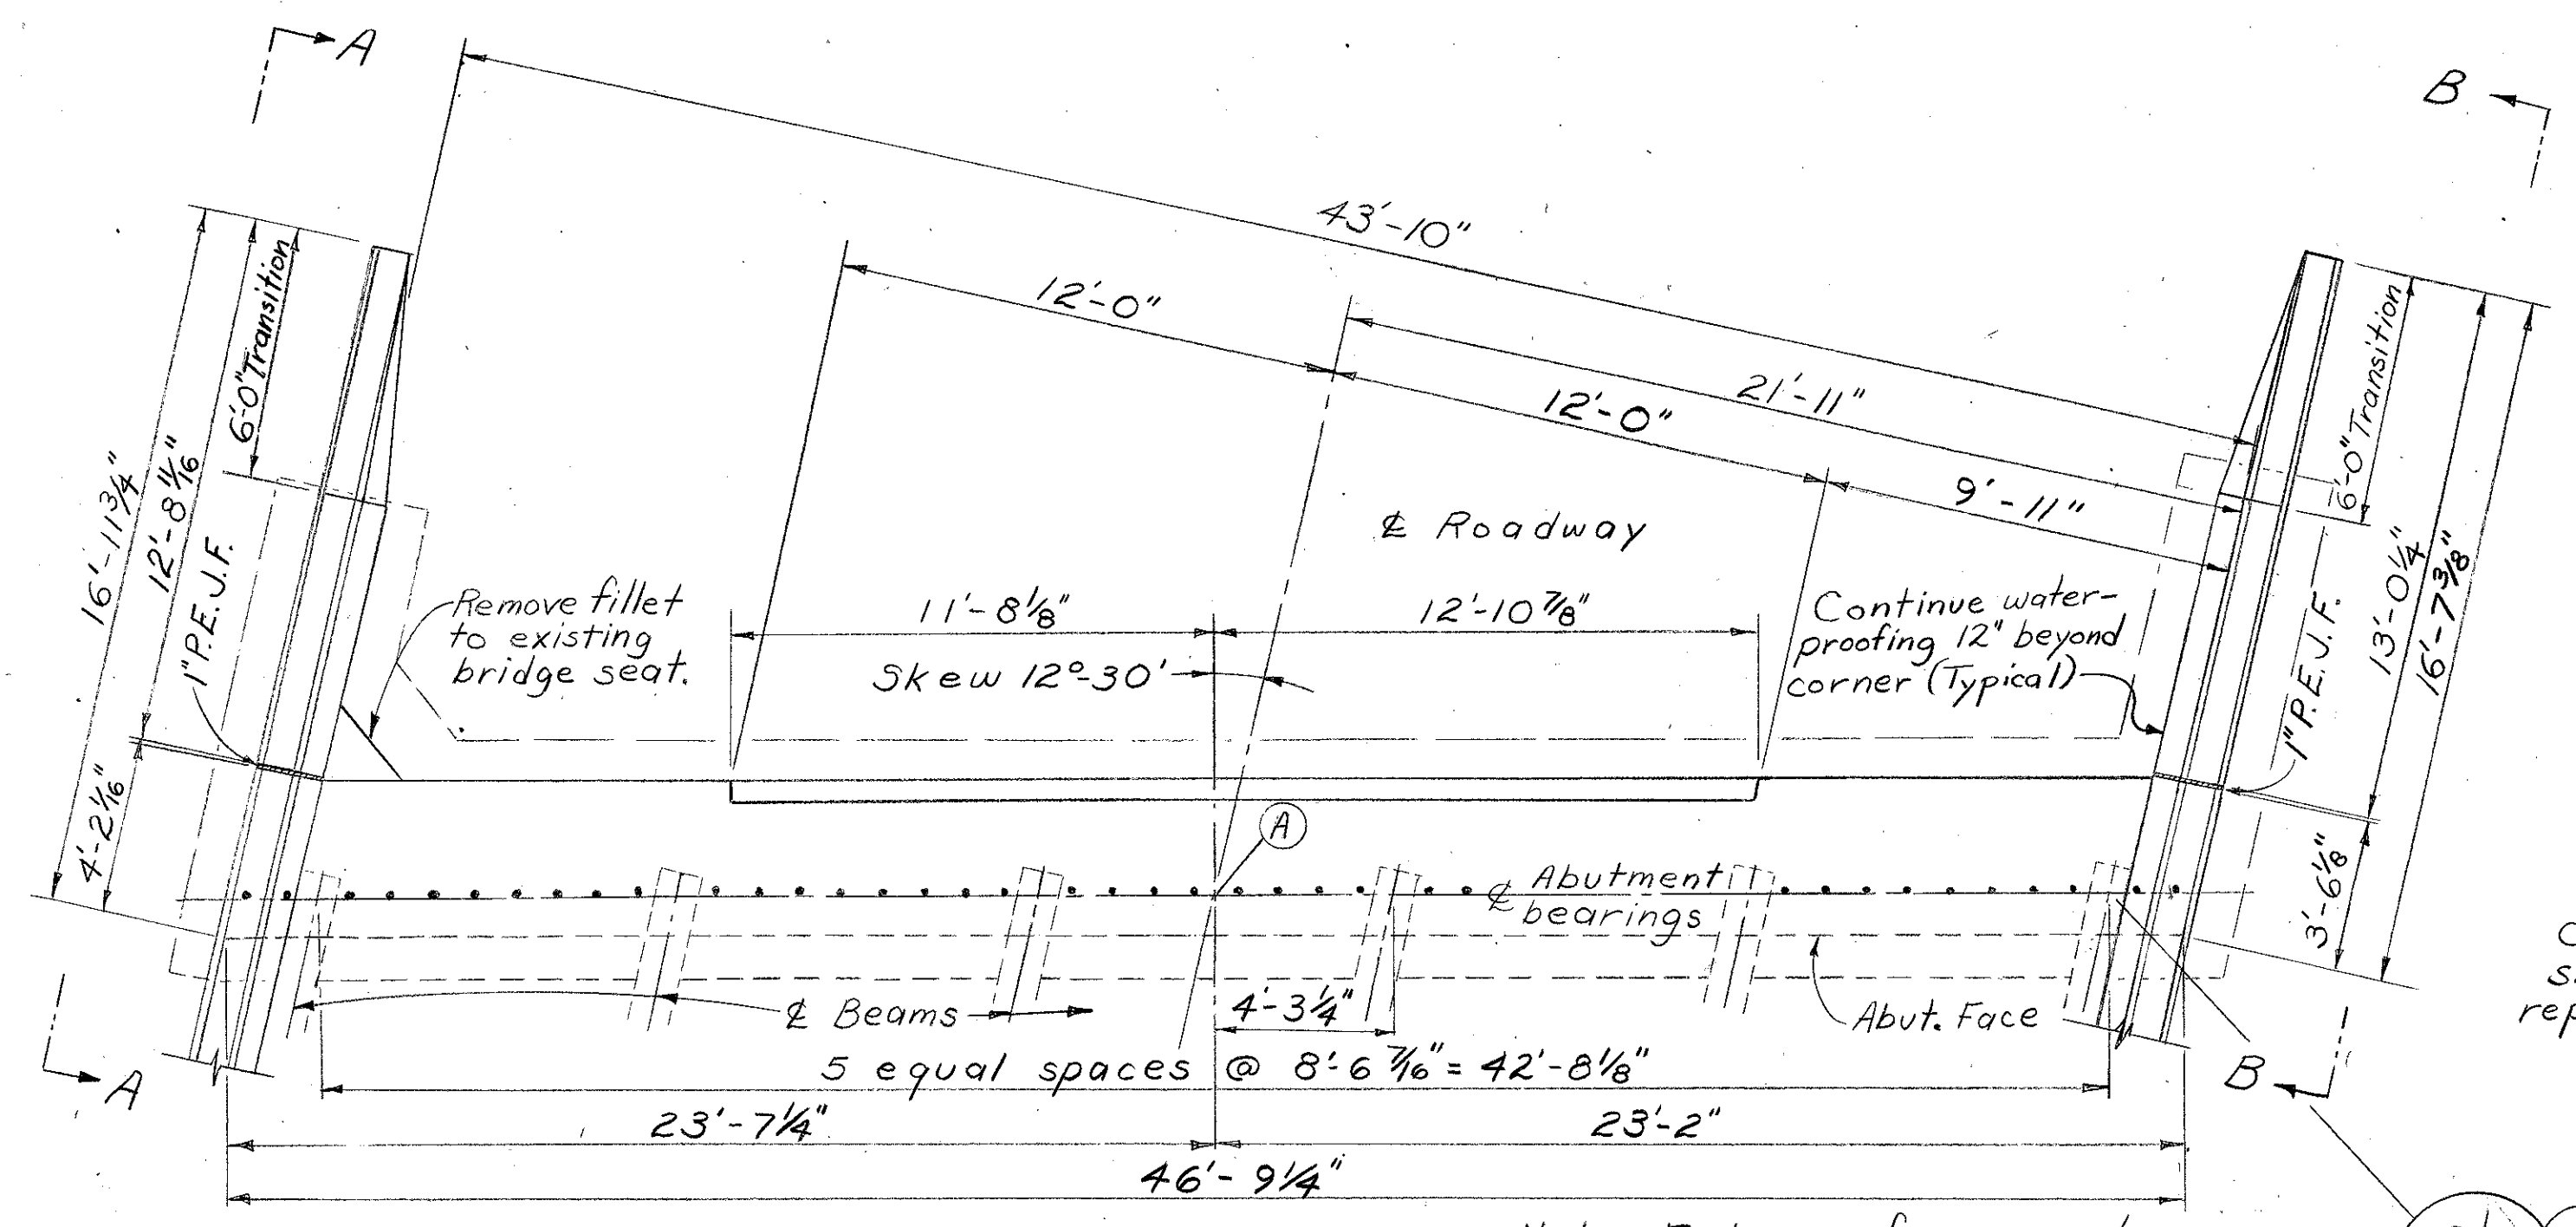 A
B
43'-10"
12'-0"
21'-11"
12'-0"
9'-11"
6'-0" Transition
12'-8 11/16"
16'-11 3/4"
4'-2 1/16"
1" P.E.J.F.
Remove fillet
to existing
bridge seat.
℄ Roadway
11'-8 1/8"
12'-10 7/8"
Skew 12°-30'
Continue water-
proofing 12" beyond
corner (Typical)
6'-0" Transition
13'-0 1/4"
16'-7 3/8"
1" P.E.J.F.
3'-6 1/8"
A
℄ Abutment
bearings
℄ Beams
4'-3 1/4"
Abut. Face
5 equal spaces @ 8'-6 7/16" = 42'-8 1/8"
A
B
23'-7 1/4"
23'-2"
46'-9 1/4"